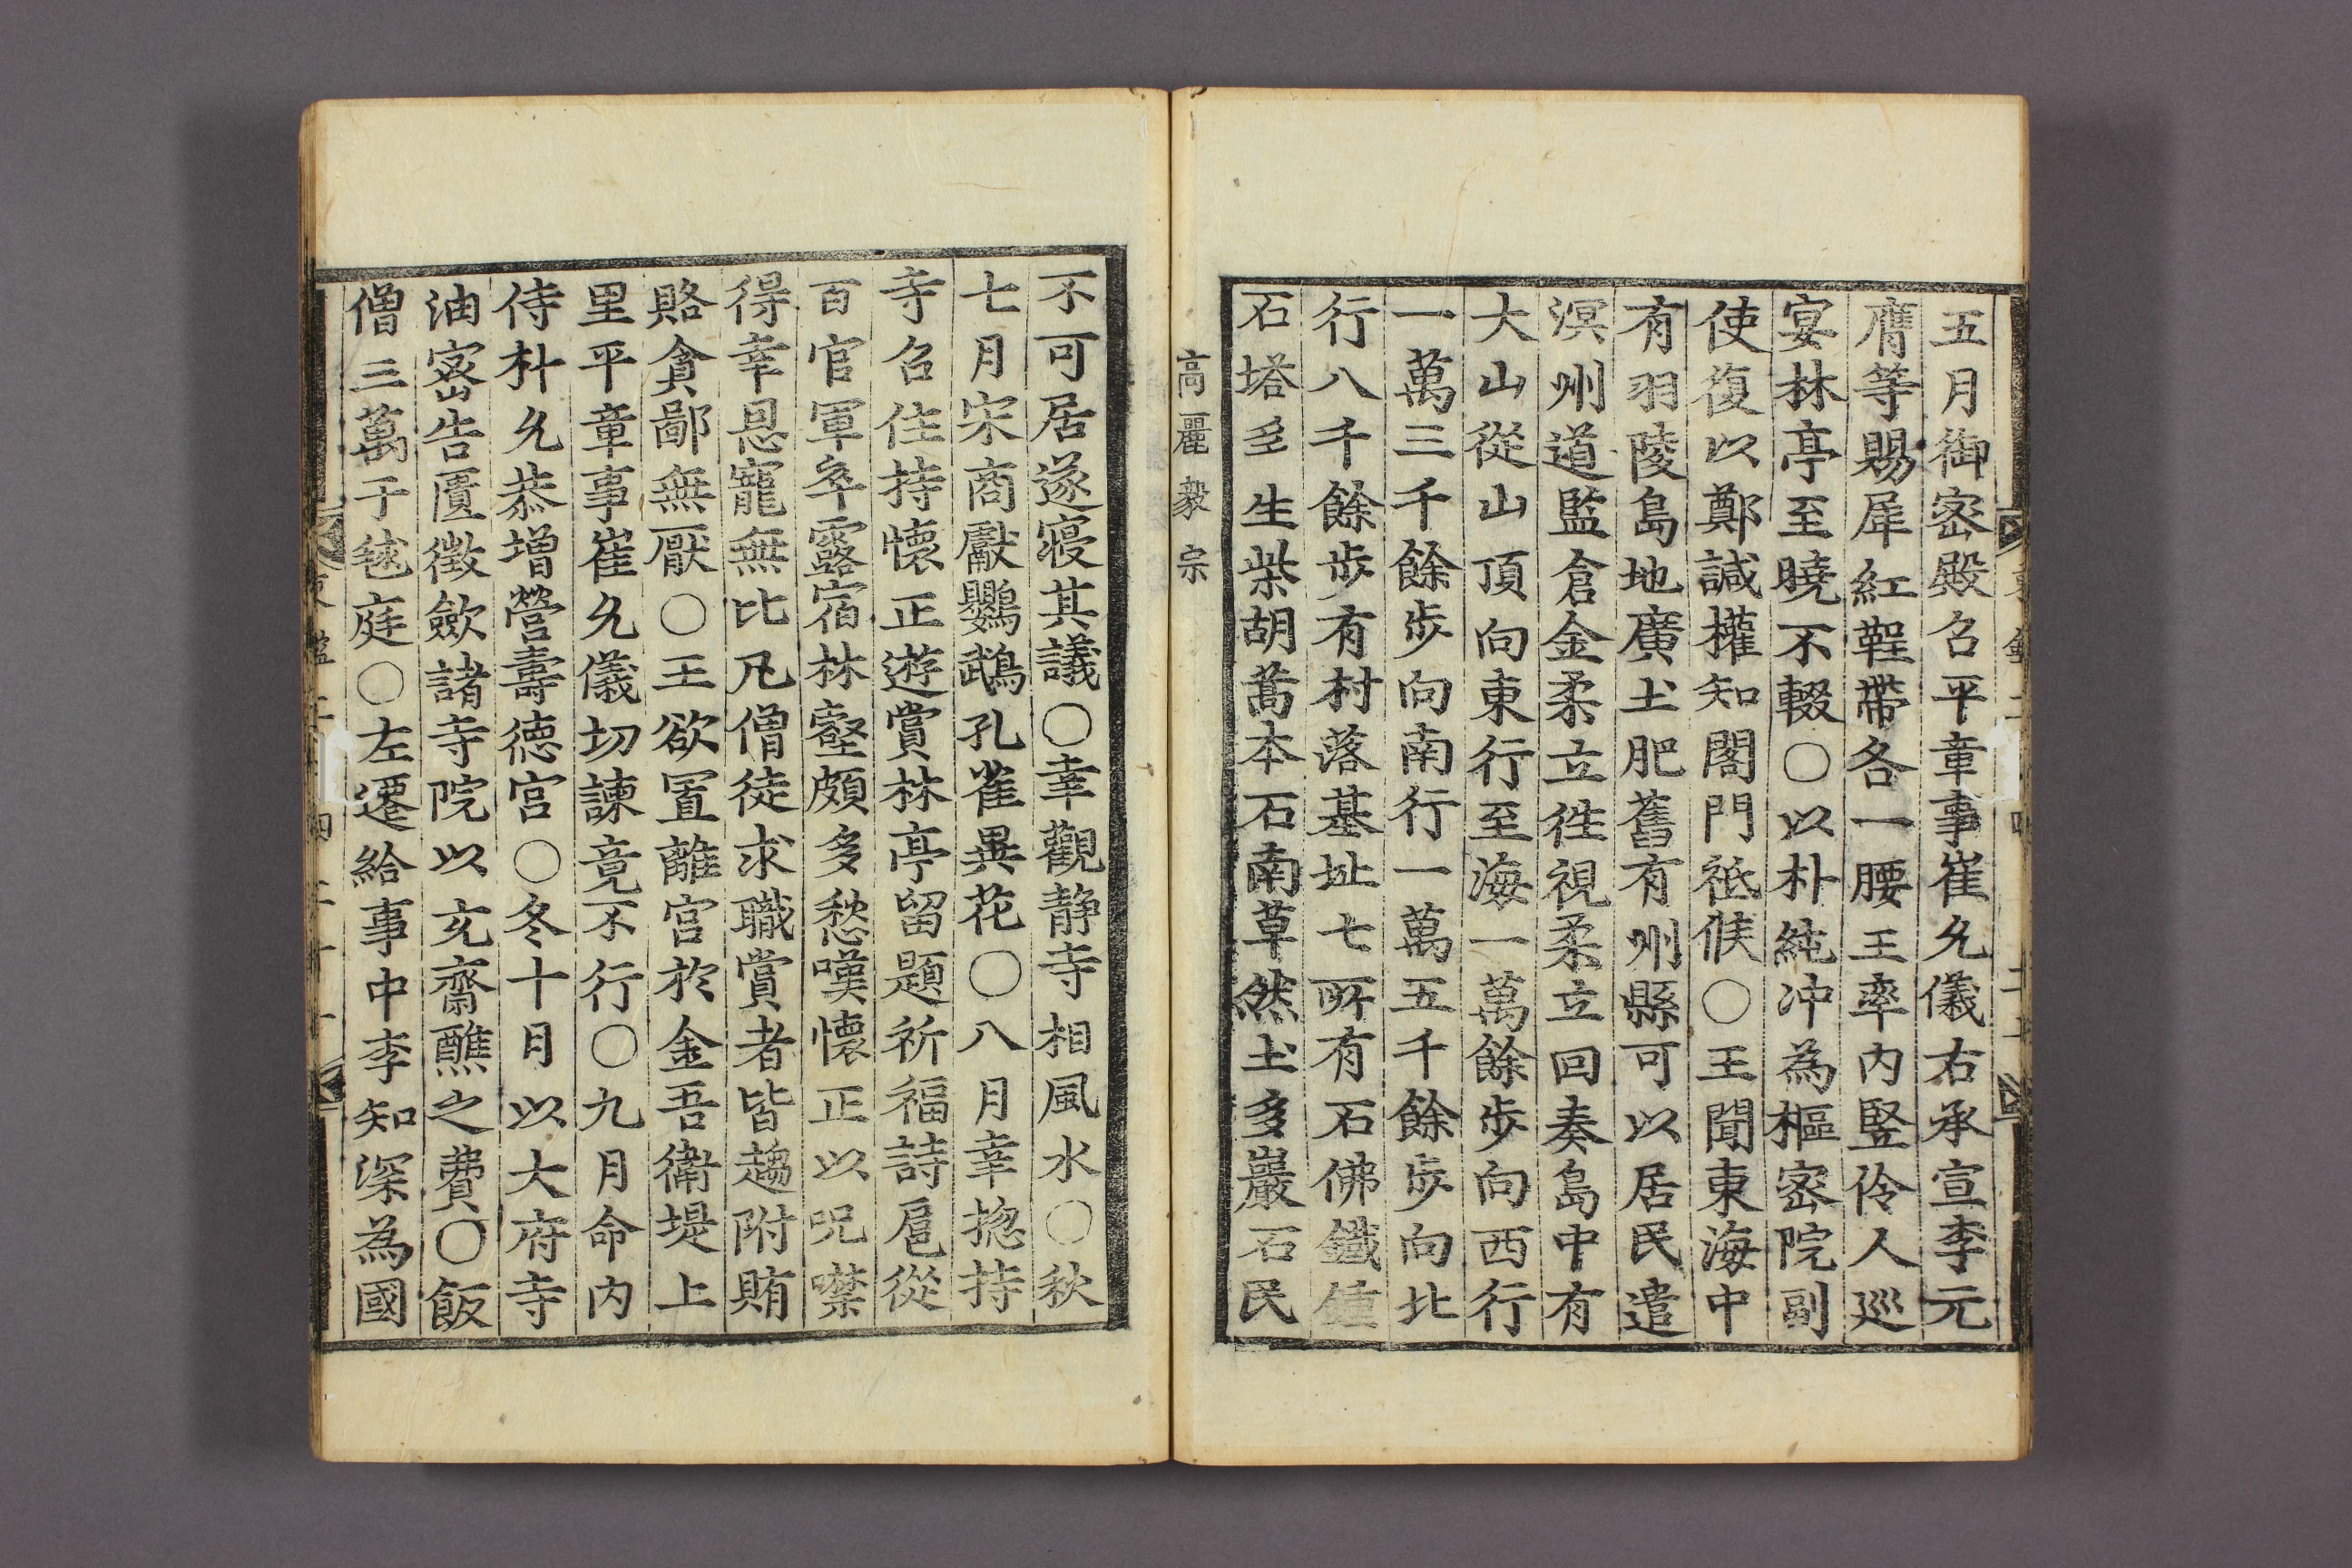 五月御宻殿召平章事崔允儀右承宣李元
膺等賜犀紅鞓帶各一腰王率内竪伶人巡
宴林亭至曉不輟○以朴純冲為樞宻院副
使復以鄭諴權知閤門祗候○王聞東海中
有羽陵島地廣土肥舊有州縣可以居民遣
溟州道監倉金柔立徃視柔立回奏島中有
大山從山頂向東行至海一萬餘步向西行
一萬三千餘步向南行一萬五千餘步向北
行八千餘步有村落基址七所有石佛鐵鍾
石塔多生柴胡蒿本石南草然土多巖石民
高麗毅宗
不可居遂寢其議○幸觀静寺相風水○秋
七月宋商獻鸚鵡孔雀異花○八月幸揔持
寺召住持懷正遊賞林亭留題祈福詩扈從
百官軍卒露宿林壑頗多愁嘆懷正以呪噤
得幸恩寵無比凡僧徒求職賞者皆趨附賄
賂貪鄙無厭○王欲置離宫於金吾衛堤上
里平章事崔允儀切諫竟不行○九月命内
侍朴允恭增營壽德宫○冬十月以大府寺
油宻告匱徴歛諸寺院以充齋醮之費○飯
僧三萬于毬庭○左遷給事中李知深為國